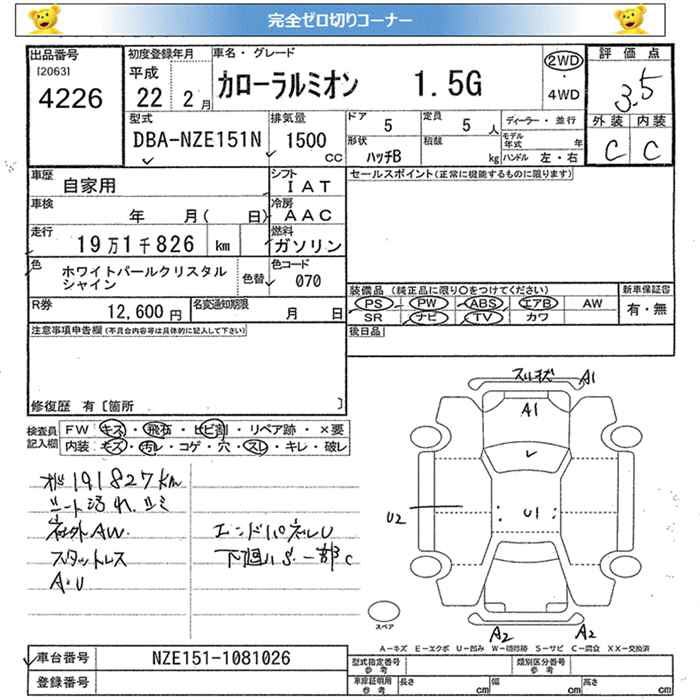 完全ゼロ切りコーナー
出品番号
[2063]
4226
初度登録年月
平成
22年 2月
車名・グレード
カローラルミオン 1.5G
2WD
・
4WD
評価点
3.5
外装 内装
C C
型式
DBA-NZE151N
排気量
1500
CC
ドア
5
定員
5人
形状
ハッチB
積載
kg
ディーラー・並行
モデル年式 年
ハンドル 左・右
車歴
自家用
シフト
IAT
セールスポイント(正常に機能するものに限ります)
車検
年 月( 日)
冷房
AAC
走行
19万1千826 km
燃料
ガソリン
色
ホワイトパールクリスタル
シャイン
色替
色コード
070
装備品(純正品に限り○をつけてください)
PS PW ABS エアB AW
SR ナビ TV カワ
新車保証書
有・無
R券
12,600円
名変通知期限
月 日
後日品
注意事項申告欄(不具合内容等は具体的に記入して下さい)
修復歴 有〔箇所 〕
検査員
記入欄
FW キズ・飛石・ヒビ割・リペア跡・×要
内装 キズ・汚れ・コゲ・穴・スレ・キレ・破レ
191827km
シート汚れ、シミ
社外AW
スタットレス
A・U
エンドパネルU
下廻りS・一部C
スリキズ A1
A1
U2
U1
A2 A2
スペア
A-キズ E-エクボ U-凹み W-補修跡 S-サビ C-腐食 XX-交換済
車台番号
NZE151-1081026
登録番号
型式指定番号
参考
類別区分番号
参考
車庫証明用
参考
長さ cm
幅 cm
高さ cm